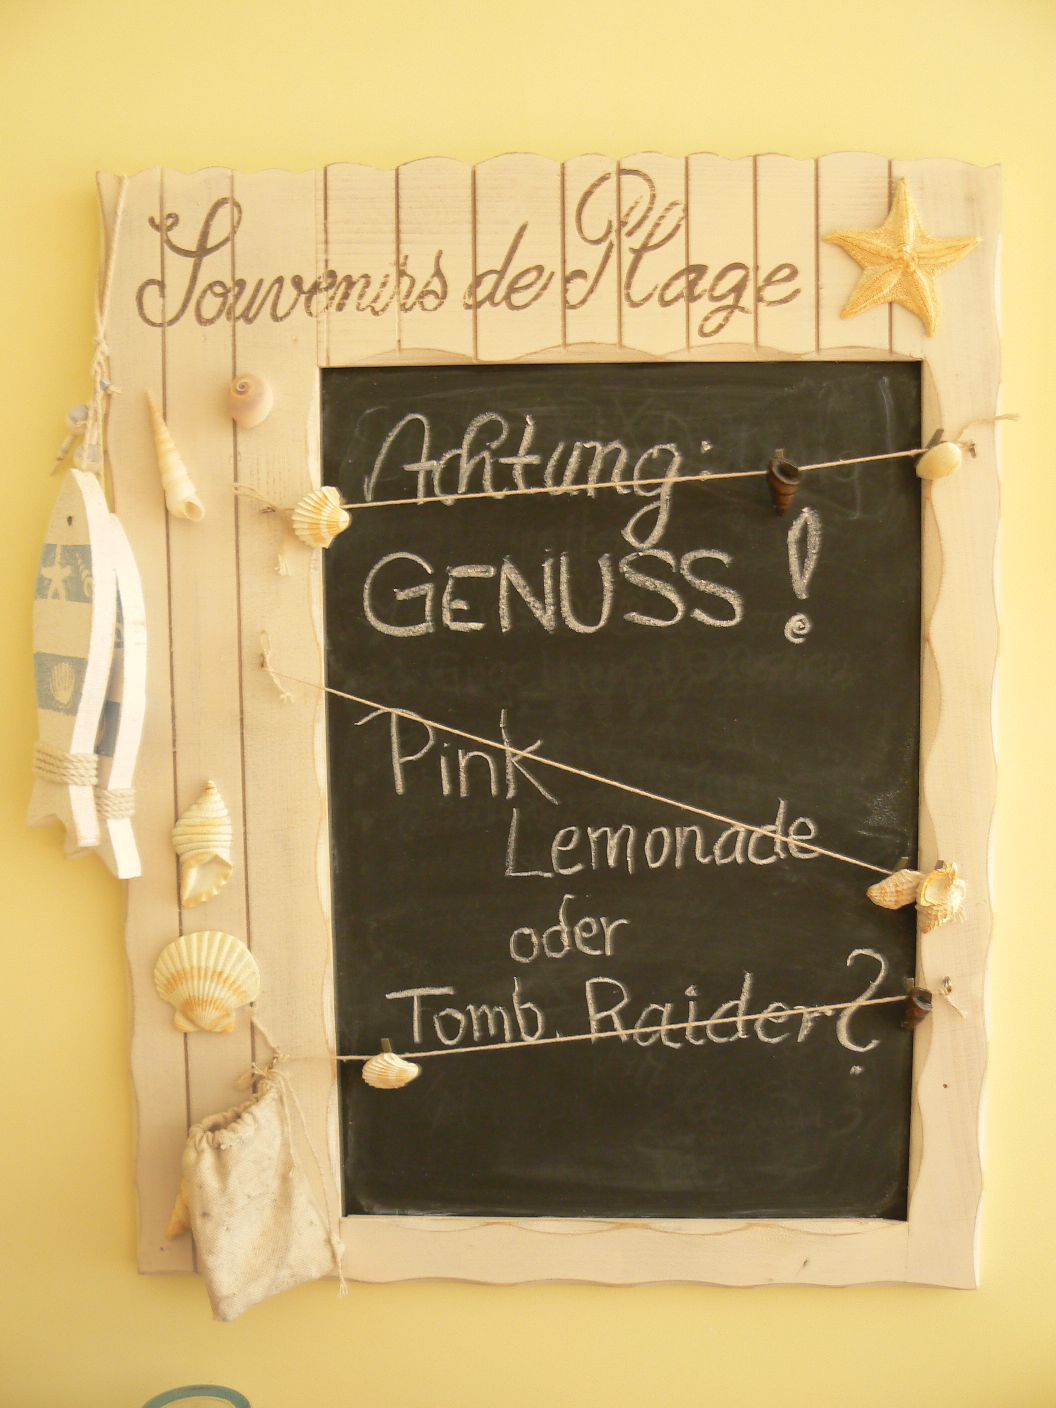 Souvenirs de Plage
Achtung:
GENUSS!
Pink
Lemonade
oder
Tomb Raider?